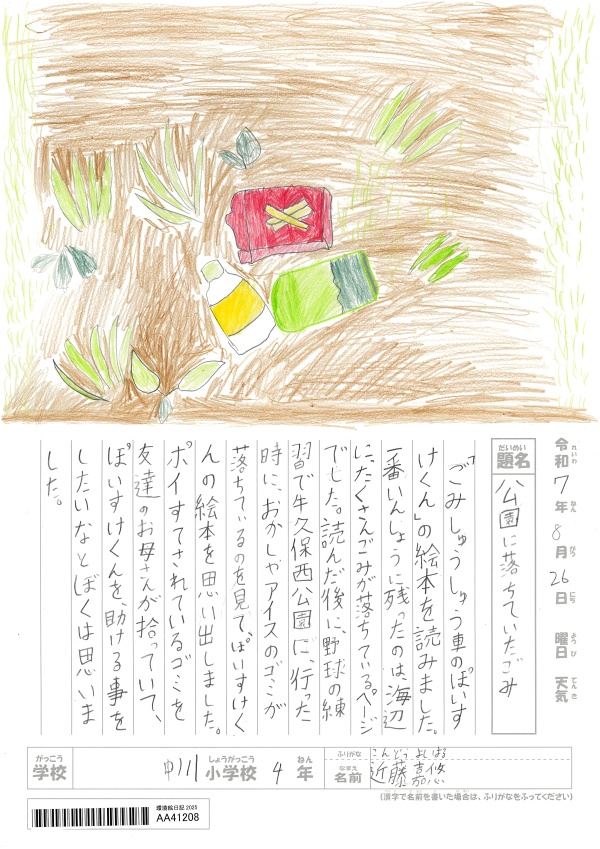 令和7年8月26日 曜日 天気
れいわ ねん がつ にち ようび てんき
だいめい
題名
公園に落ちていたごみ
「ごみしゅうしゅう車のぽいす
けくん」の絵本を読みました。
一番いんしょうに残ったのは、海辺
に、たくさんごみが落ちているページ
でした。読んだ後に、野球の練
習で牛久保西公園に、行った
時に、おかしやアイスのゴミが
落ちているのを見て、ぽいすけく
んの絵本を思い出しました。
ポイすてされているゴミを
友達のお母さんが拾っていて、
ぽいすけくんを、助ける事を
したいなとぼくは思いま
した。
がっこう しょうがっこう ねん
学校 中川 小学校 4 年
ふりがな こんどう よしはる
なまえ
名前 近藤 嘉悠
(漢字で名前を書いた場合は、ふりがなをふってください)
環境絵日記 2025
AA41208